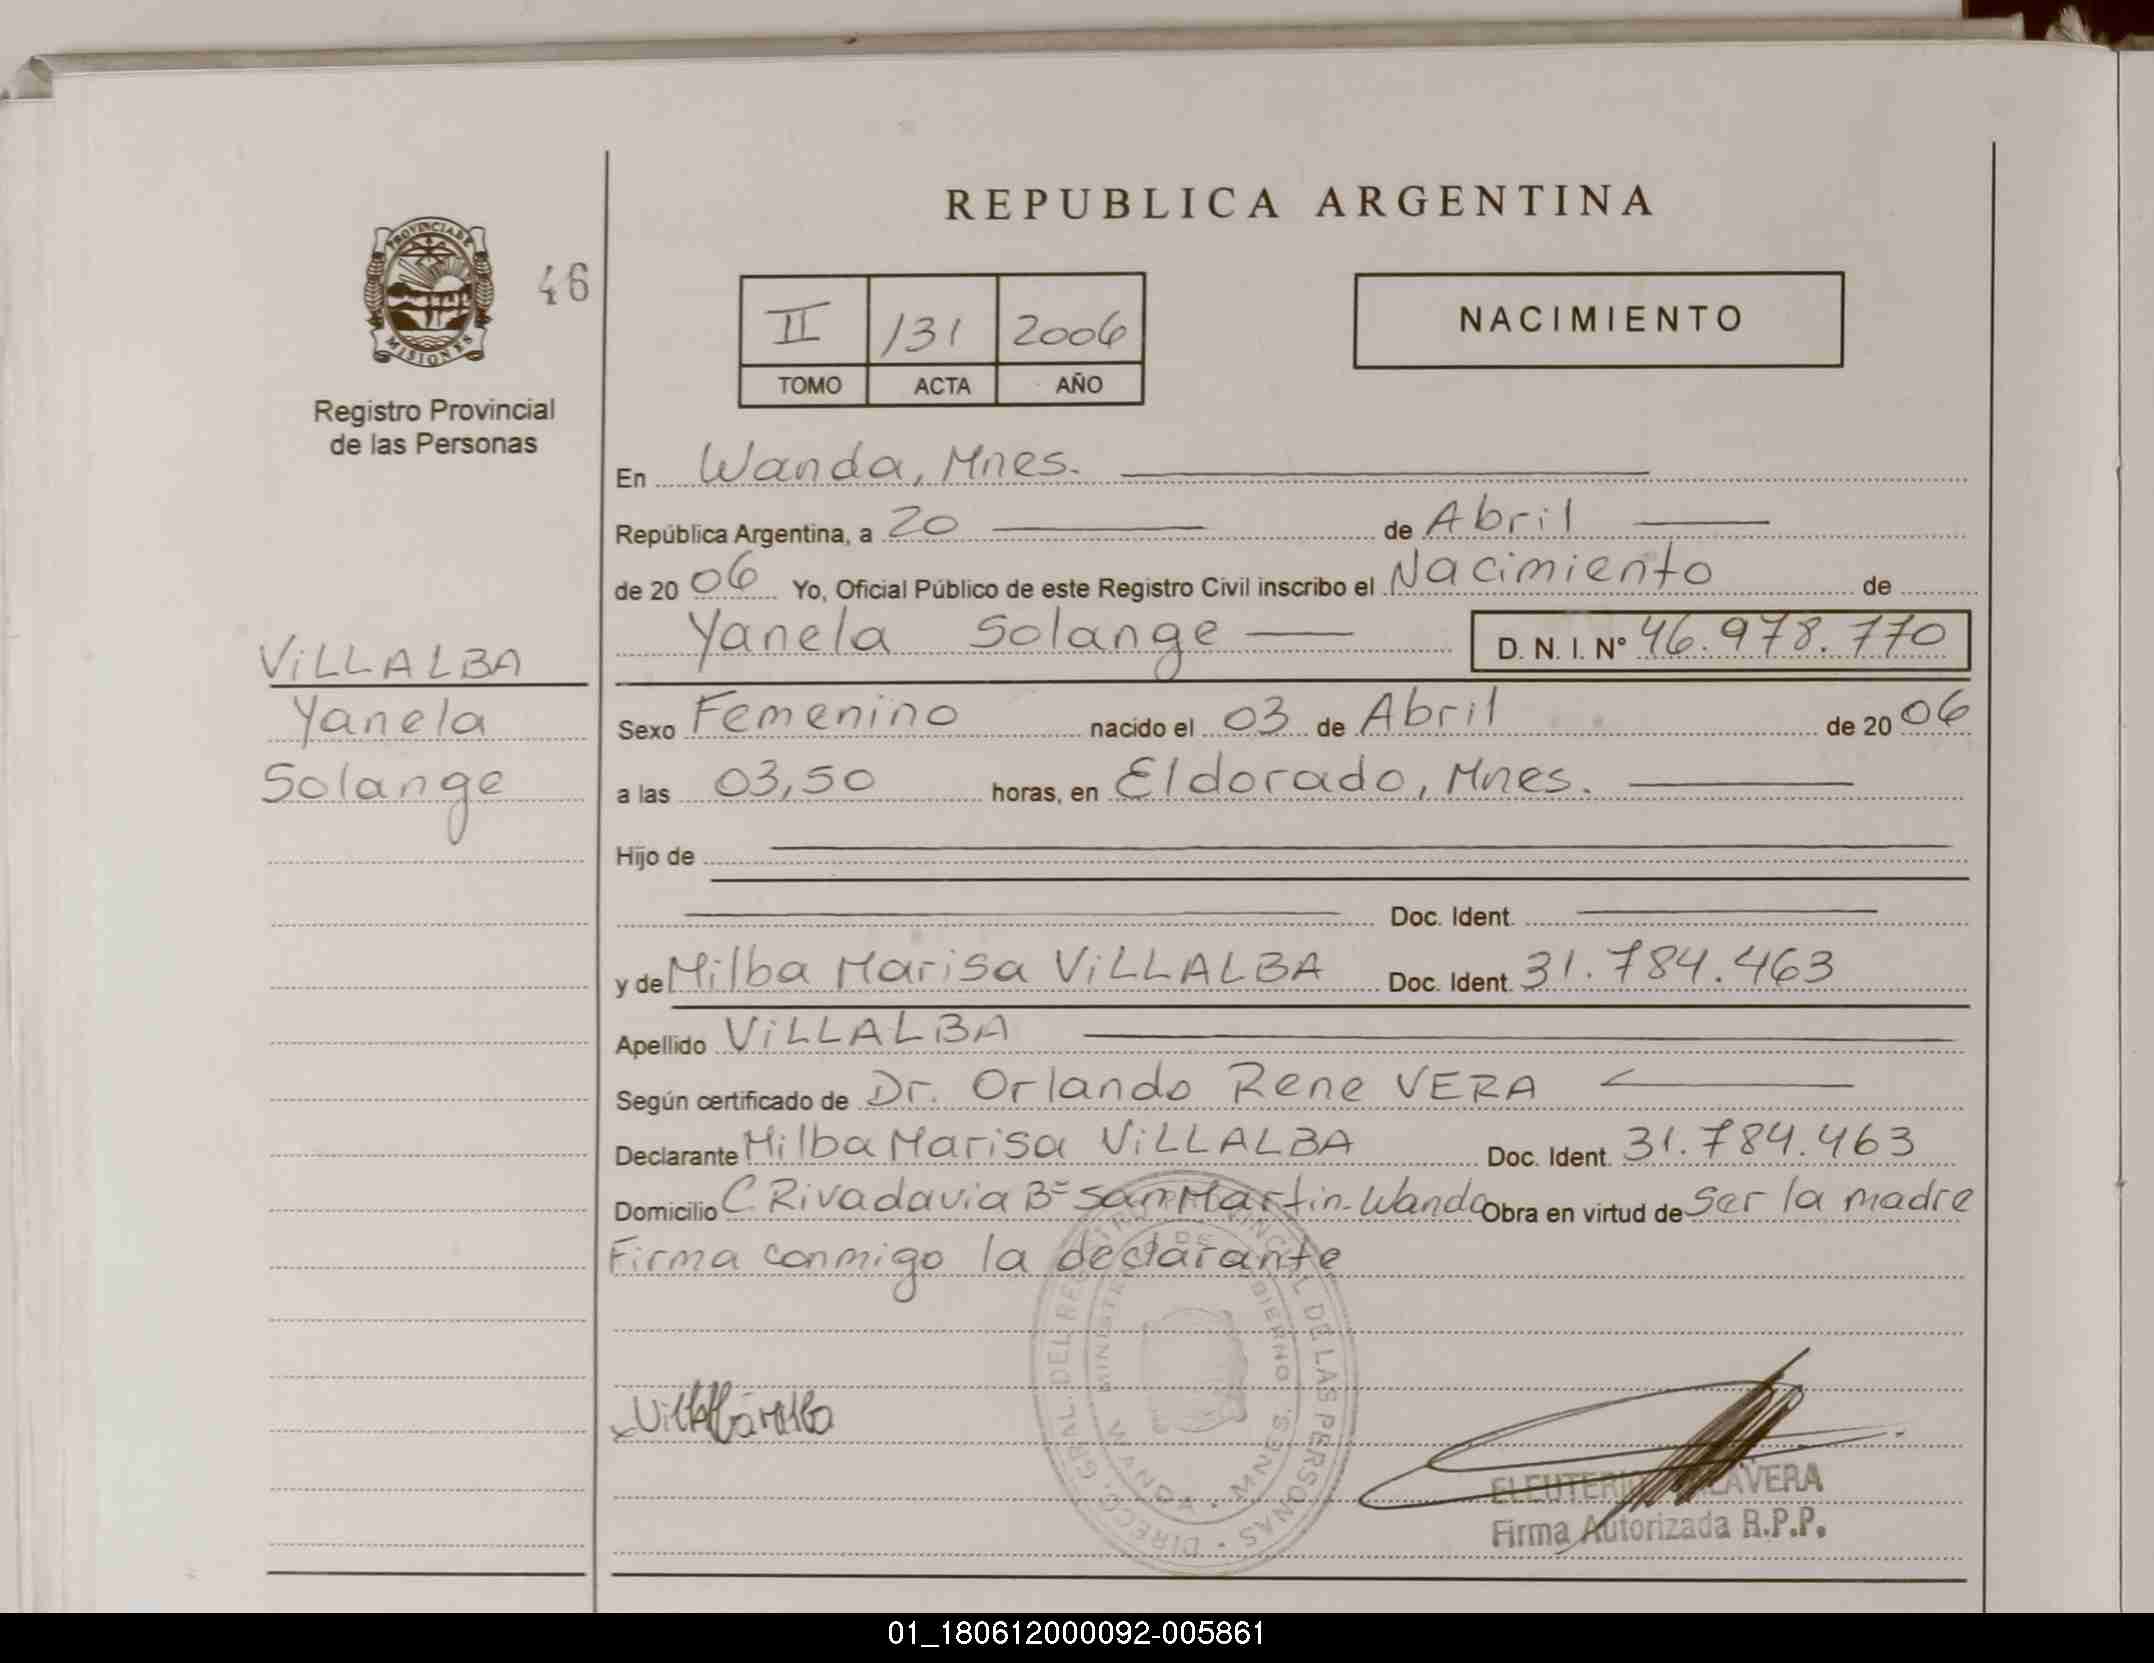 REPUBLICA ARGENTINA
PROVINCIA DE
MISIONES
46
II /31 2006
TOMO ACTA AÑO
NACIMIENTO
Registro Provincial
de las Personas
En Wanda, Mnes.
República Argentina, a 20 de Abril
de 20 06 Yo, Oficial Público de este Registro Civil inscribo el Nacimiento de
Yanela Solange D. N. I. N° 46.978.770
ViLLALBA
Yanela
Solange
Sexo Femenino nacido el 03 de Abril de 20 06
a las 03,50 horas, en Eldorado, Mnes.
Hijo de
Doc. Ident.
y de Milba Marisa ViLLALBA Doc. Ident. 31.784.463
Apellido ViLLALBA
Según certificado de Dr. Orlando Rene VERA
Declarante Milba Marisa ViLLALBA Doc. Ident. 31.784.463
Domicilio C Rivadavia Bº San Martin-Wanda Obra en virtud de Ser la madre
Firma conmigo la declarante
DIRECC. GRAL. DEL REGISTRO PROVINCIAL DE LAS PERSONAS
MINISTERIO DE GOBIERNO
WANDA - MNES.
Firma Autorizada R.P.P.
01_180612000092-005861